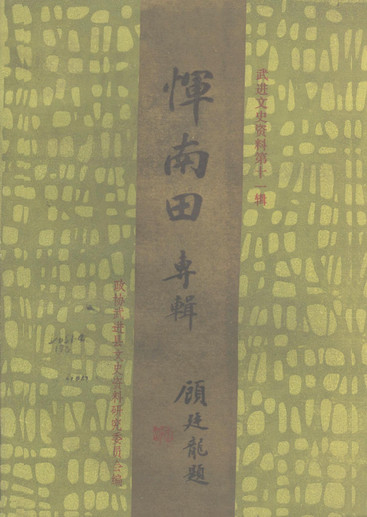 武进文史资料第十一辑
惲南田
専輯
顧廷龍題
政协武进县文史资料研究委员会编